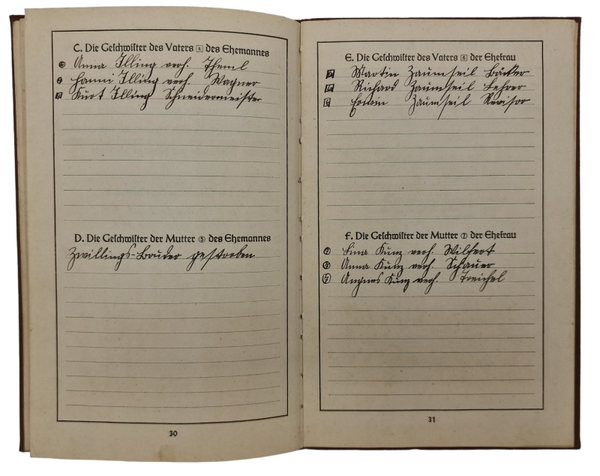 C. Die Geschwister des Vaters 4 des Ehemannes
Anna Illing verh. Theml
Hanni Illing verh. Wagner
Kurt Illing Schneidermeister
D. Die Geschwister der Mutter 5 des Ehemannes
Zwillings-Bruder gestorben
30
E. Die Geschwister des Vaters 6 der Ehefrau
Martin Zaumseil Bäcker
Richard Zaumseil Lehrer
Zaumseil Revisor
F. Die Geschwister der Mutter 7 der Ehefrau
Lina Kunz verh. Wilfert
Anna Kunz verh. Schauer
Kunz verh. Treichel
31